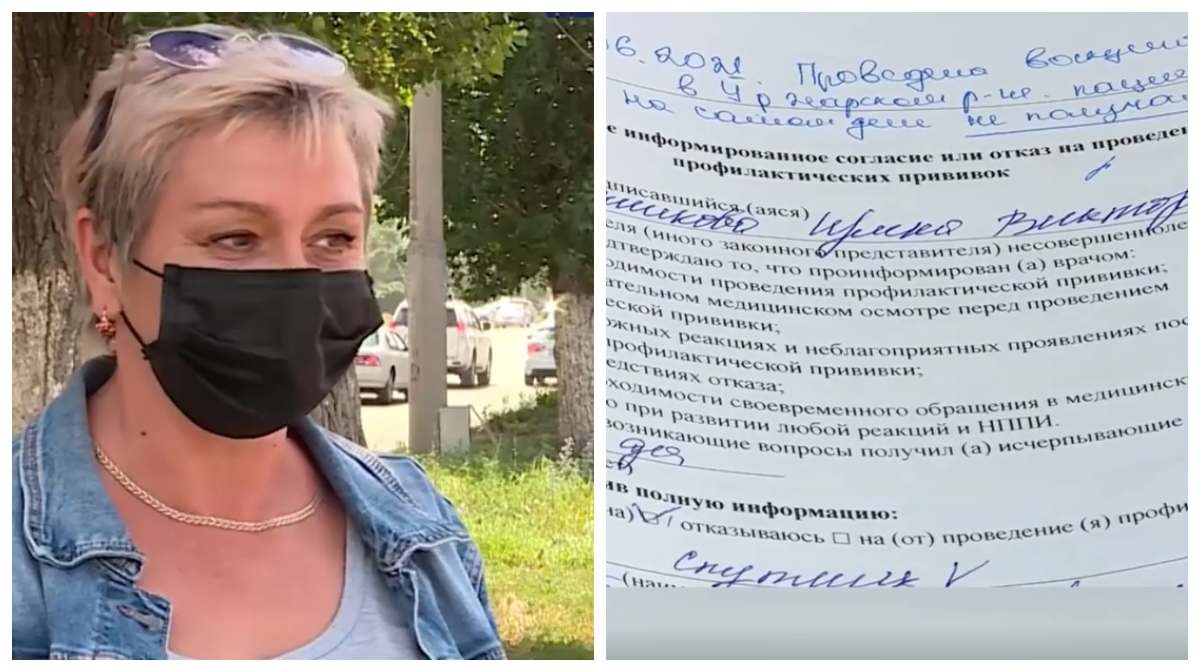 06.2021. Проведена вакцин
в Уржарском р-не. пацие
на самом деле не получал
е информированное согласие или отказ на проведен
профилактических прививок
дписавшийся (аяся)
шикова Ирина Виктор
еля (иного законного представителя) несовершенноле
дтверждаю то, что проинформирован (а) врачом:
одимости проведения профилактической прививки;
ательном медицинском осмотре перед проведением
еской прививки;
ожных реакциях и неблагоприятных проявлениях пос
рофилактической прививки;
едствиях отказа;
ходимости своевременного обращения в медицинск
о при развитии любой реакций и НППИ.
возникающие вопросы получил (а) исчерпывающие
да
ив полную информацию:
на) отказываюсь □ на (от) проведение (я) профи
Спутник V
(наим